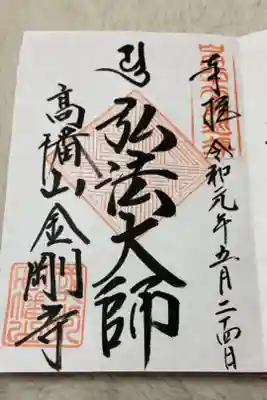 奉拝 令和元年五月二十四日
弘法大師
高幡山金剛寺